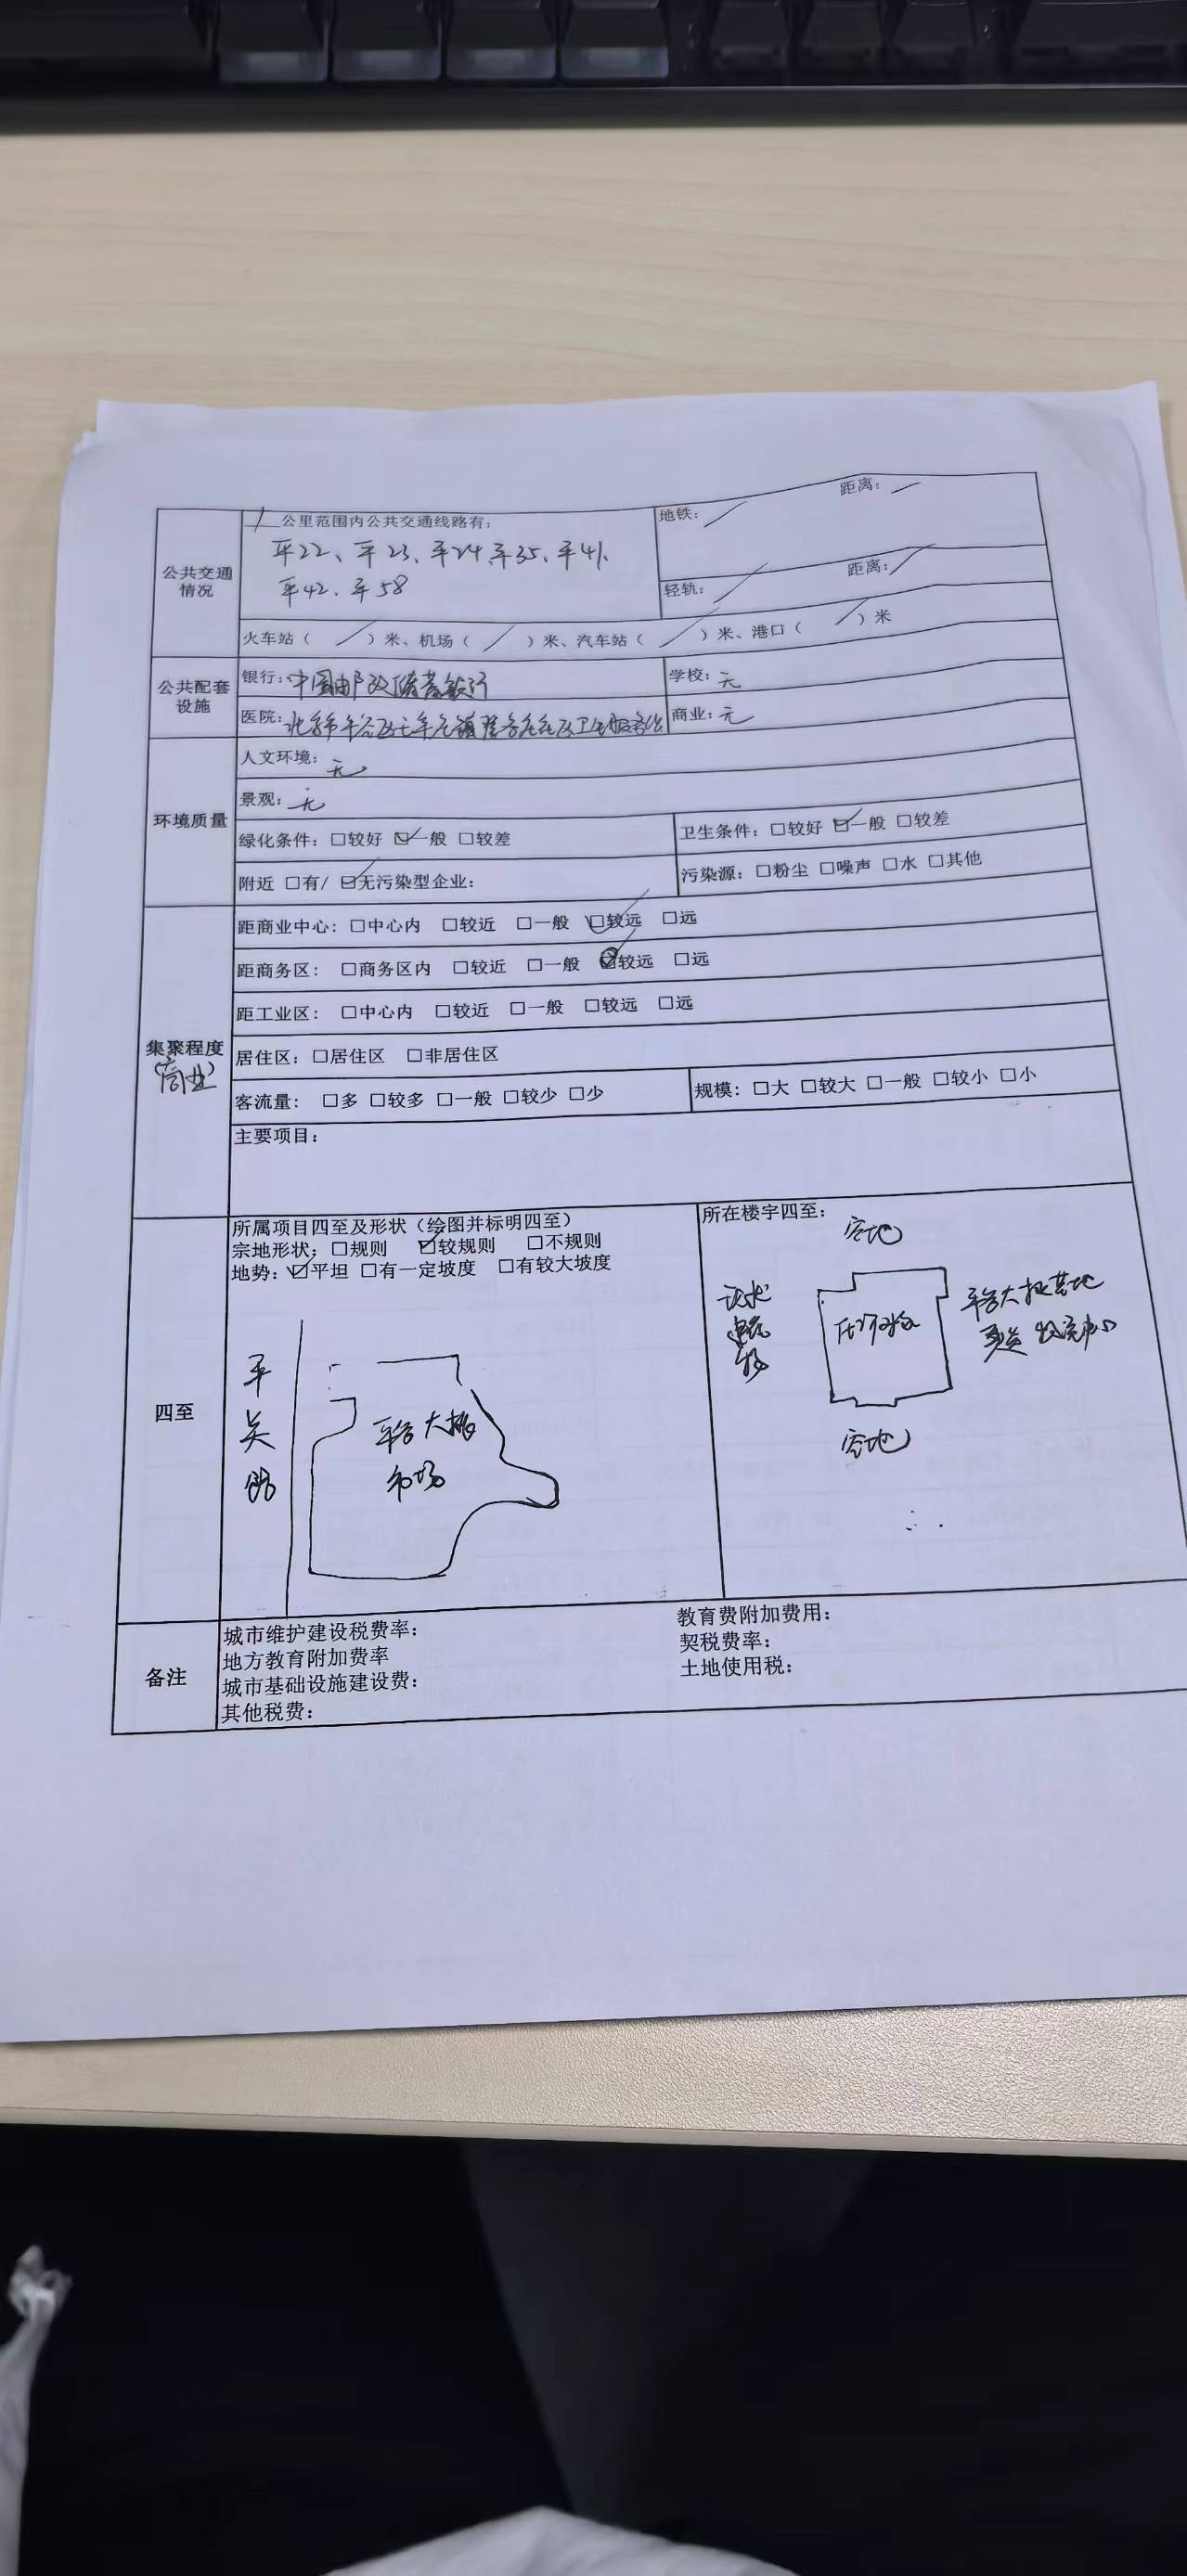 1 公里范围内公共交通线路有:
地铁: / 距离: /
平22、平23、平24、平35、平41、
公共交通情况
平42、平58
轻轨: / 距离: /
火车站( / )米、机场( / )米、汽车站( / )米、港口( / )米
公共配套设施
银行:中国邮政储蓄银行 学校:无
医院:北京市平谷区 卫生服务 商业:无
环境质量
人文环境:无
景观:无
绿化条件:□较好 ☑一般 □较差 卫生条件:□较好 ☑一般 □较差
附近 □有/ ☑无污染型企业: 污染源:□粉尘 □噪声 □水 □其他
集聚程度
(商业)
距商业中心:□中心内 □较近 □一般 ☑较远 □远
距商务区: □商务区内 □较近 □一般 ☑较远 □远
距工业区: □中心内 □较近 □一般 □较远 □远
居住区:□居住区 □非居住区
客流量: □多 □较多 □一般 □较少 □少 规模:□大 □较大 □一般 □较小 □小
主要项目:
四至
所属项目四至及形状(绘图并标明四至)
宗地形状:□规则 ☑较规则 □不规则
地势:☑平坦 □有一定坡度 □有较大坡度
平关路
平谷大桃
市场
所在楼宇四至:
空地
平谷大桃基地
空地
备注
城市维护建设税费率: 教育费附加费用:
地方教育附加费率 契税费率:
城市基础设施建设费: 土地使用税:
其他税费: